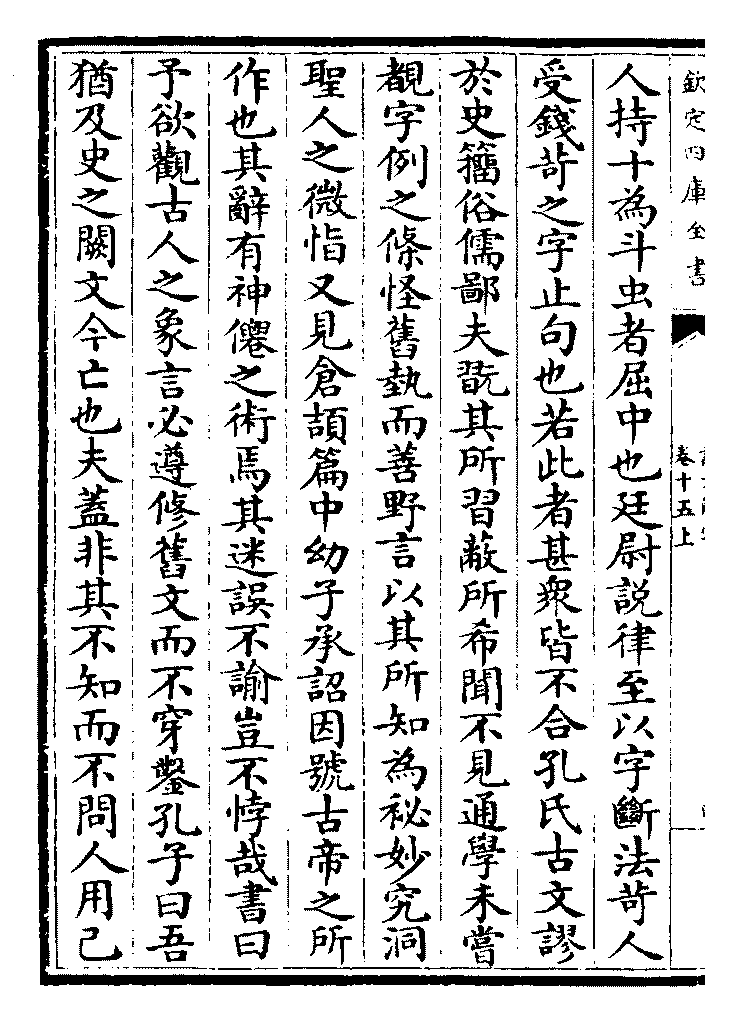 欽定四庫全書
卷十五上
人持十為斗虫者屈中也廷尉說律至以字斷法苛人
受錢苛之字止句也若此者甚衆皆不合孔氏古文謬
於史籀俗儒鄙夫翫其所習蔽所希聞不見通學未嘗
覩字例之條怪舊埶而善野言以其所知為秘妙究洞
聖人之微恉又見倉頡篇中幼子承詔因號古帝之所
作也其辭有神僊之術焉其迷誤不諭豈不悖哉書曰
予欲觀古人之象言必遵修舊文而不穿鑿孔子曰吾
猶及史之闕文今亡也夫蓋非其不知而不問人用己